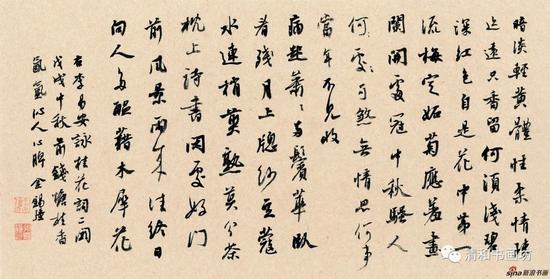 暗淡輕黃體性柔情疎
迹遠只香留何須淺碧
深紅色自是花中第一
流梅定妬菊應羞畫
闌開處冠中秋騷人
可煞無情思何事
當年不見收
病起蕭蕭兩鬢華臥
看殘月上牕紗豆蔻
水連梢煎熟莫分茶
枕上詩書閑處好門
前風景雨來佳終日
向人多醞藉木犀花
右李易安詠桂花詞二闋
戊戌中秋前錢塘桂香
氤氳沁人心脾 金錫
清和书画坊
sina新浪书画